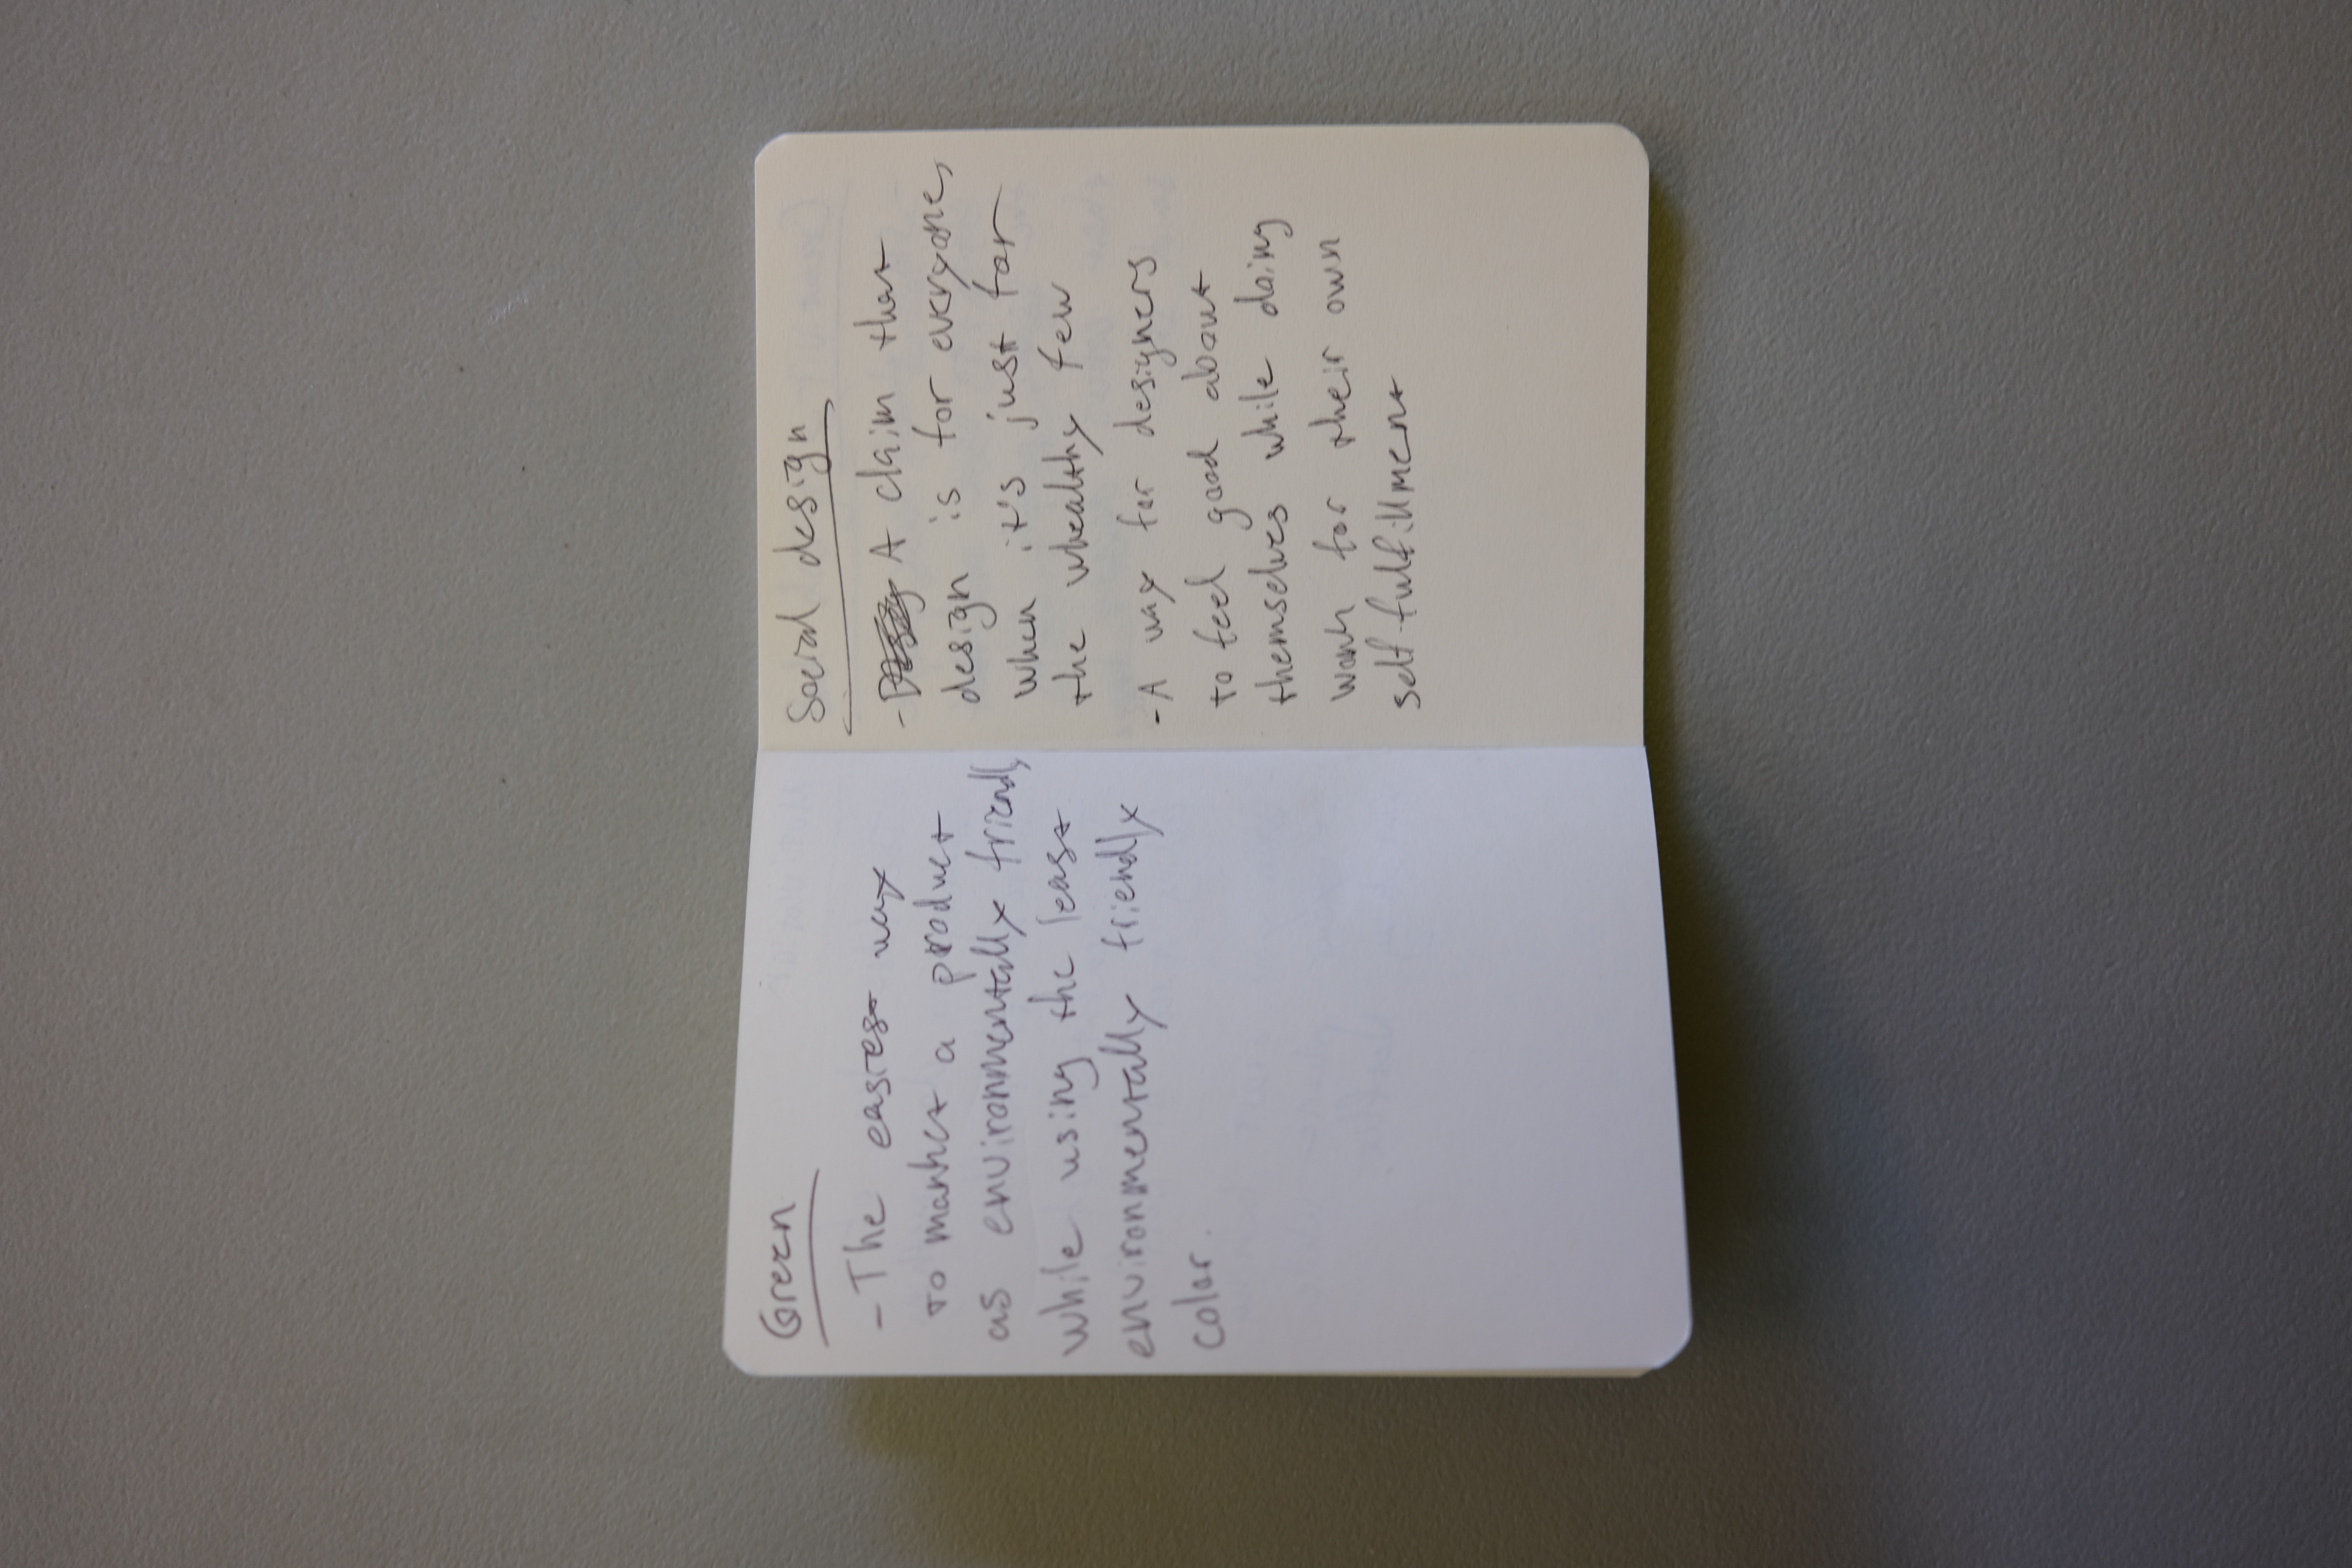 Green
- The easiest way
to market a product
as environmentally friendly
while using the least
environmentally friendly
color.
Social design
- A claim that
design is for everyone,
when it's just for
the whealthy few
- A way for designers
to feel good about
themselves while doing
work for their own
self-fulfillment